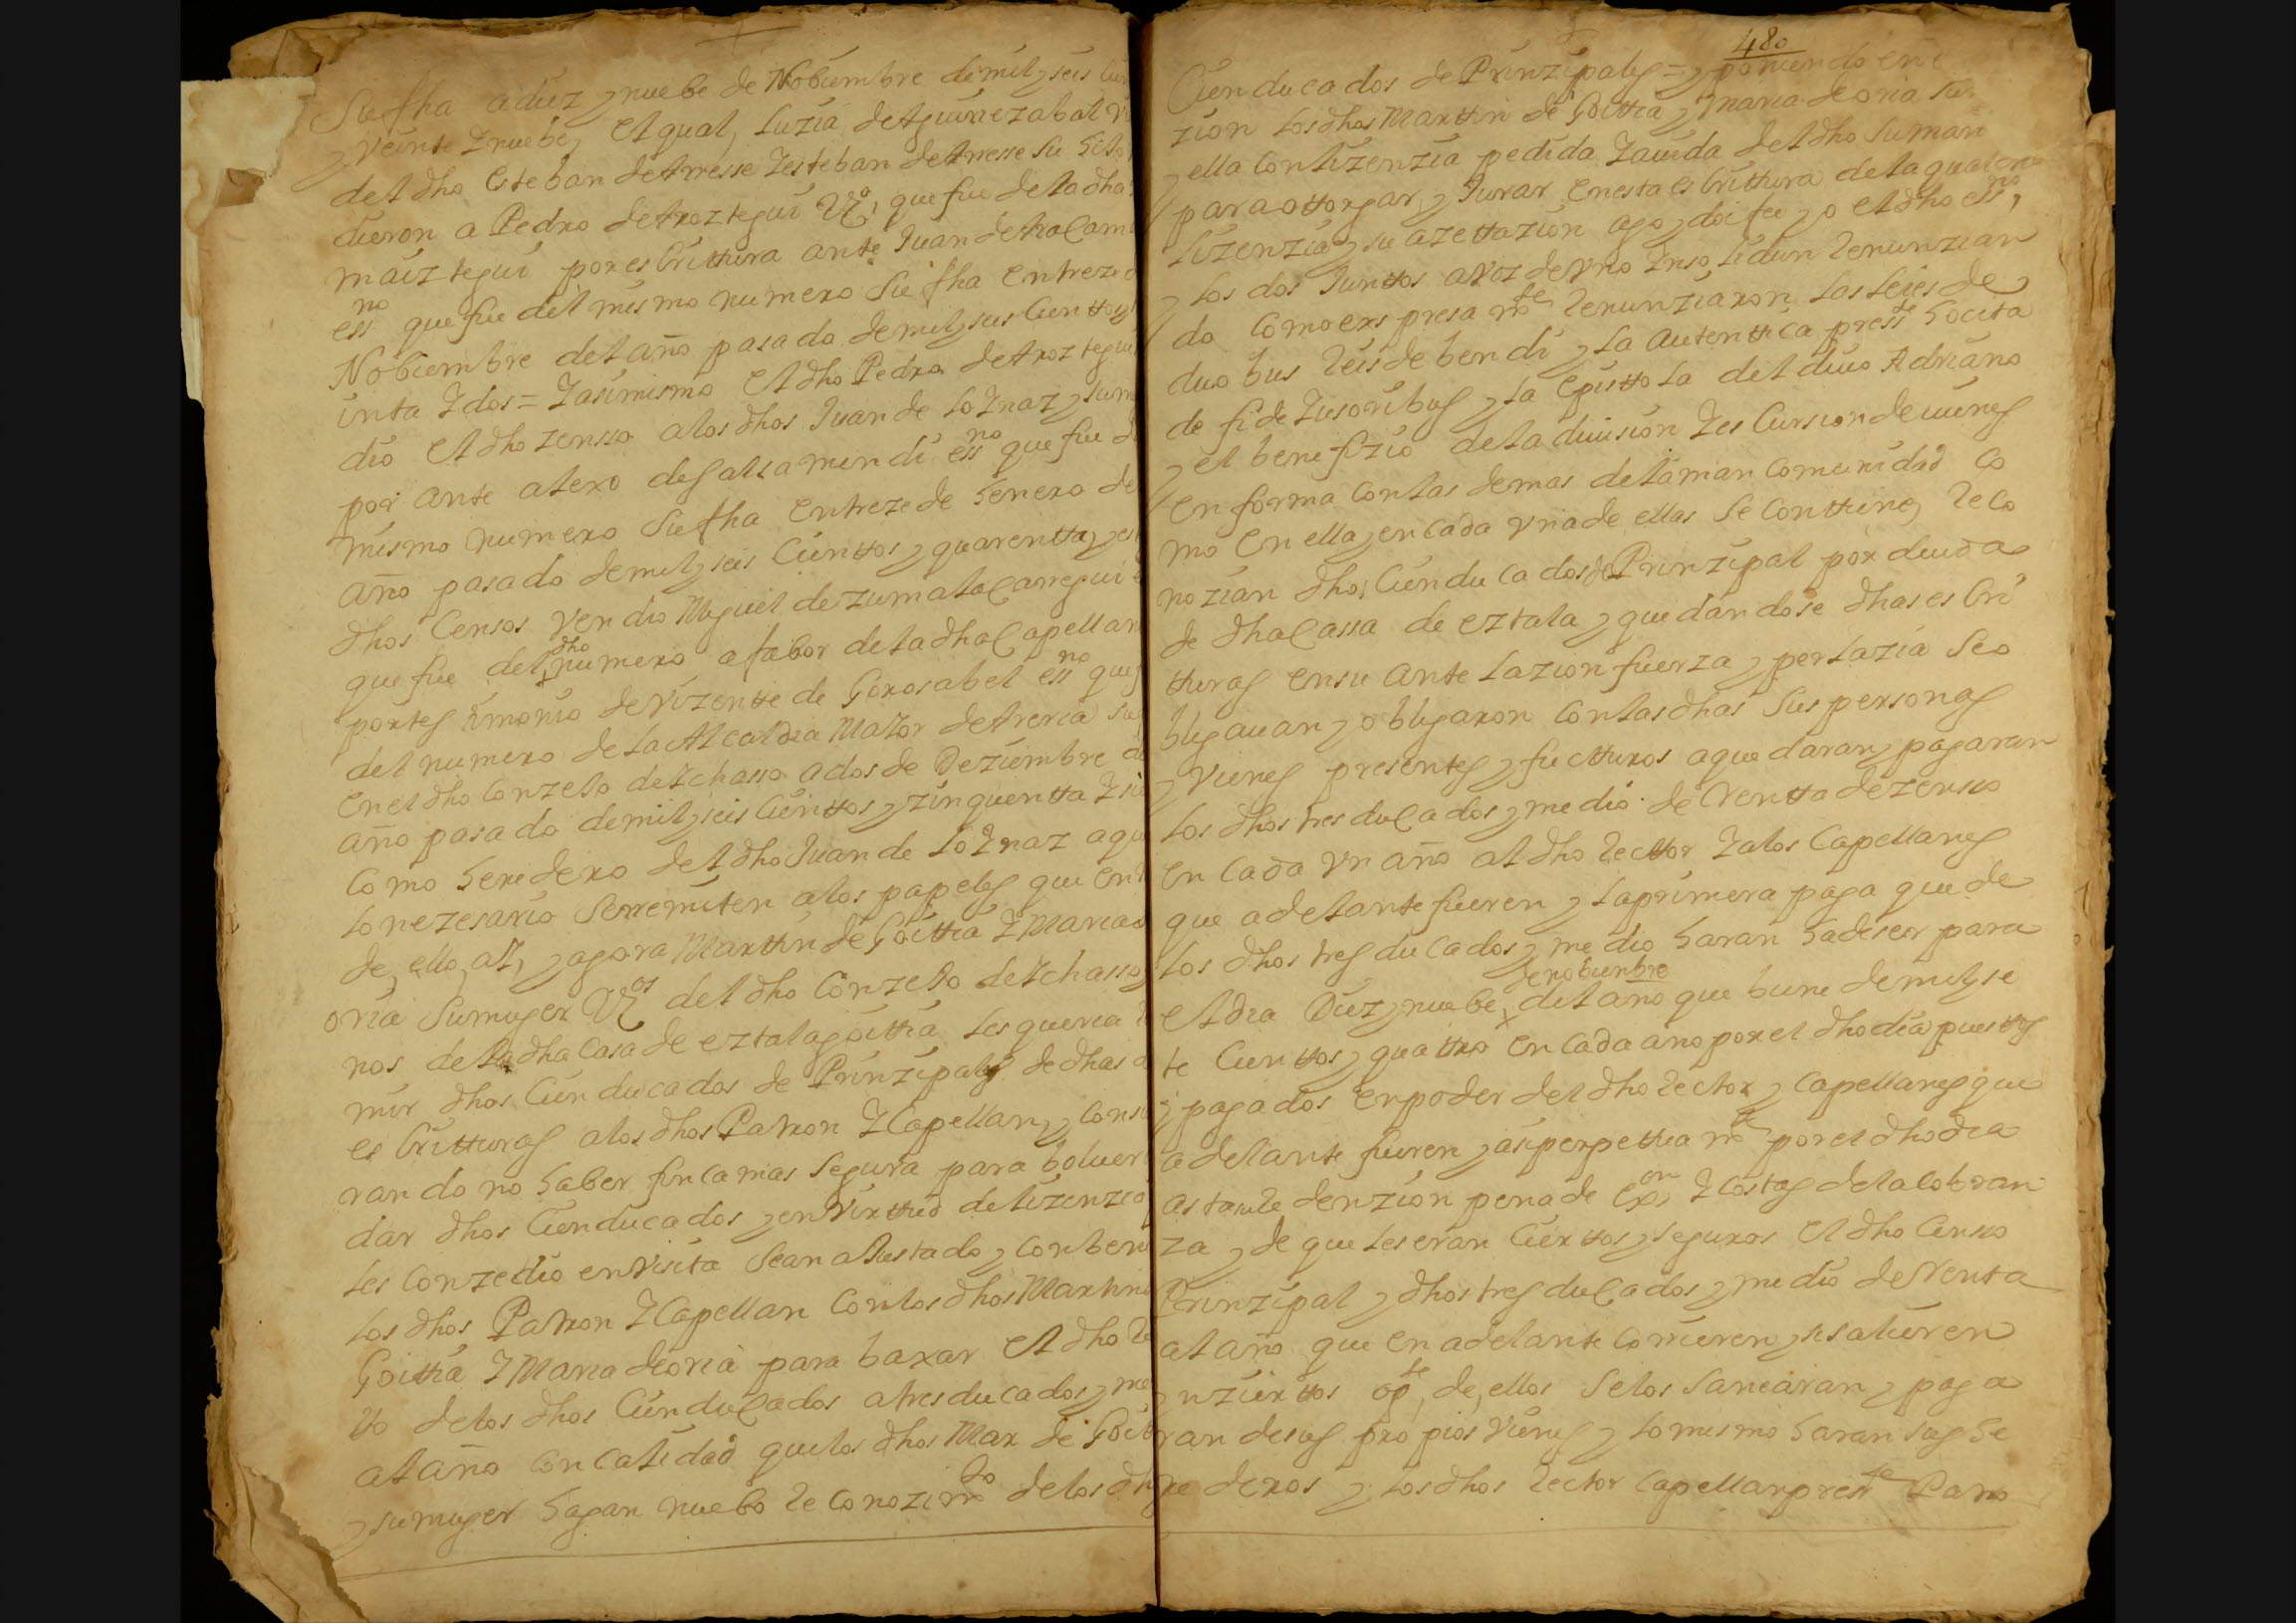 Su fha a diez y nuebe de Nobiembre de mil y seis
y veinte y nuebe, el qual, Luzia de Aguirrezabal
del dho esteban de Arresse y esteban de Arresse su hijo
dieron a Pedro de Aroztegui Vzo, que fue de la dha
maiztegui por escrittura ante Juan de
essno que fue del mismo numero su fha en treze
Nobiembre del año pasado de mil y seis cienttos y
inta y dos = y asimismo el dho Pedro de Aroztegui
dio el dho zensso a los dhos Juan de Loynaz y su
por ante alexo de Galsamendi essno que fue
mismo numero su fha en treze de henero de
año pasado de mil y seis cienttos y quarentta y
dhos Censos vendio Miguel de zumalacarregui
que fue del dho numero a fabor de la dha Capellan
portes timonio de Vizentte de Gorosabel essno que
del numero de la Alcaldia Maior de Areria
en el dho conzejo de Ychasso a dos de Deziembre
año pasado de mil y seis cienttos y zinquentta y
como heredero del dho Juan de Loynaz
lo nezesario se rremiten a los papeles que
de, ello, ay, y agora Marttin de Goittia y Maria
oria su muger Vzos del dho conzejo de Ychasso
nos de la dha casa de eztala goittia les queria
mir dhos cien ducados de Prinzipales de dhas
es critturas a los dhos Patron y Capellan, y
rando no haber finca mas segura para bolver
dar dhos cien ducados y en virttud de lizenzia
les conzedio en visita se an ajustado y
los dhos Patron y Capellan con los dhos Marttin
Goittia y Maria de oria para baxar el dho
to de los dhos cien ducados a tres ducados y me
al año con calidad que los dhos Mar de
y su muger hagan nuebo reconozimto de los
480
Cien ducados de Prinzipales = y poniendo en
zion los dhos Marttin de Goittia y Maria de oria su
y ella con lizenzia pedida y auida del dho su mari
para ottorgar y Jurar en esta escrittura de la qual
lizenzia y su azettazion ago y doi fee yo el dho essno,
y los dos Junttos a voz de vno ynsolidun renunzian
do como expresamte renunziaron las leies de
duo bus reis de bendi y la autenttica presste hocita
de fide Jusoribus y la epistola del diuo Adriano
y el benefizio de la diuision y escursion de uienes
en forma con las demas de la mancomunidad co
mo en ella y en cada vna de ellas se conttiene, reco
nozian dhos cien ducados de Prinzipal por deuda
de dha Cassa de eztala y quedandose dhas escri
tturas en su ante lazion fuerza y perlazia seo
bligauan y obligaron con las dhas sus personas
y vienes presentes y fuctturos a que daran y pagaran
los dhos tres ducados y medio de rentta de zensso
en cada vn año al dho recttor y a los Capellanes
que adelante fueren y la primera paga que de
los dhos tres ducados y medio haran ha de ser para
el dia Diez y nuebe de nobienbre del año que biene de mil y se
te cienttos y quattro en cada año por el dho dia puesttos
y pagados en poder del dho rector y capellanes que
adelante fueren y asi perpettuamte por el dho dia
asta su redenzion pena de exon y costas de la cobran
za y de que les eran ciertos y seguros el dho Censso
Prinzipal y dhos tres ducados y medio de Renta
al año que en adelante corrieren y si salieren
ynziertos o pte, de, ellos se los sanearan y paga
ran de sus propios vienes y lo mismo haran sus he
rederos y los dhos rector capellan presste Patro